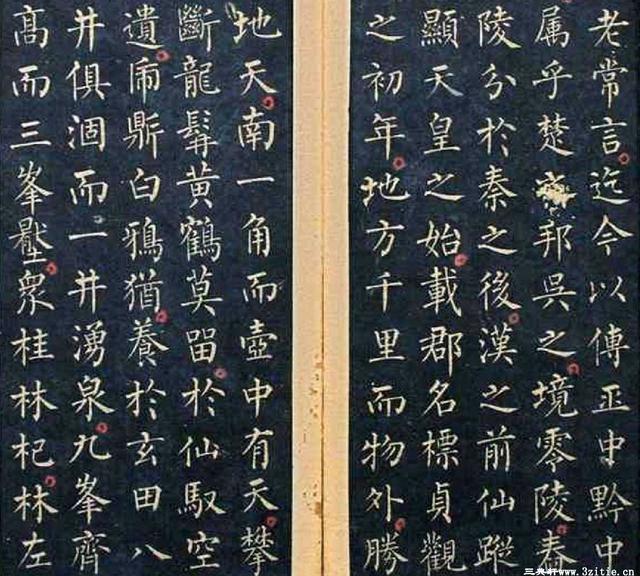 老常言迄今以傳巫中黔中
属乎楚邦吳之境零陵舂
陵分於秦之後漢之前仙蹤
顯天皇之始載郡名標貞觀
之初年地方千里而物外勝
地天南一角而壺中有天攀
斷龍髯黄鶴莫畱於仙馭空
遺鼎白鴉猶養於玄田八
井俱涸而一井湧泉九峯齊
髙而三峯壓衆桂林杞林左
www.3zitie.cn